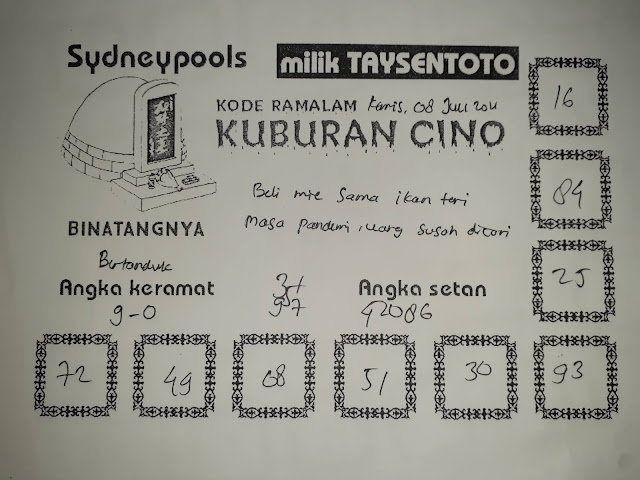 Sydneypools
milik TAYSENTOTO
KODE RAMALAM Kamis, 08 Juli 2021
KUBURAN CINO
16
Beli mie sama ikan teri
84
Masa pandemi, uang susah dicari
BINATANGNYA
Bertanduk
25
Angka keramat
Angka setan
9-0
97
42086
72
49
08
51
30
93